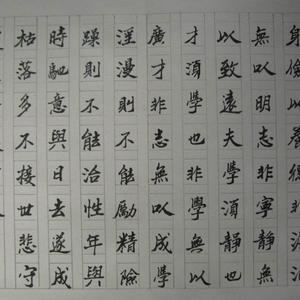 身儉以養德非
無以明志非寧靜無
以致遠夫學須靜也
才須學也非學無以
廣才非志無以成學
淫漫則不能勵精險
躁則不能治性年與
時馳意與日去遂成
枯落多不接世悲守